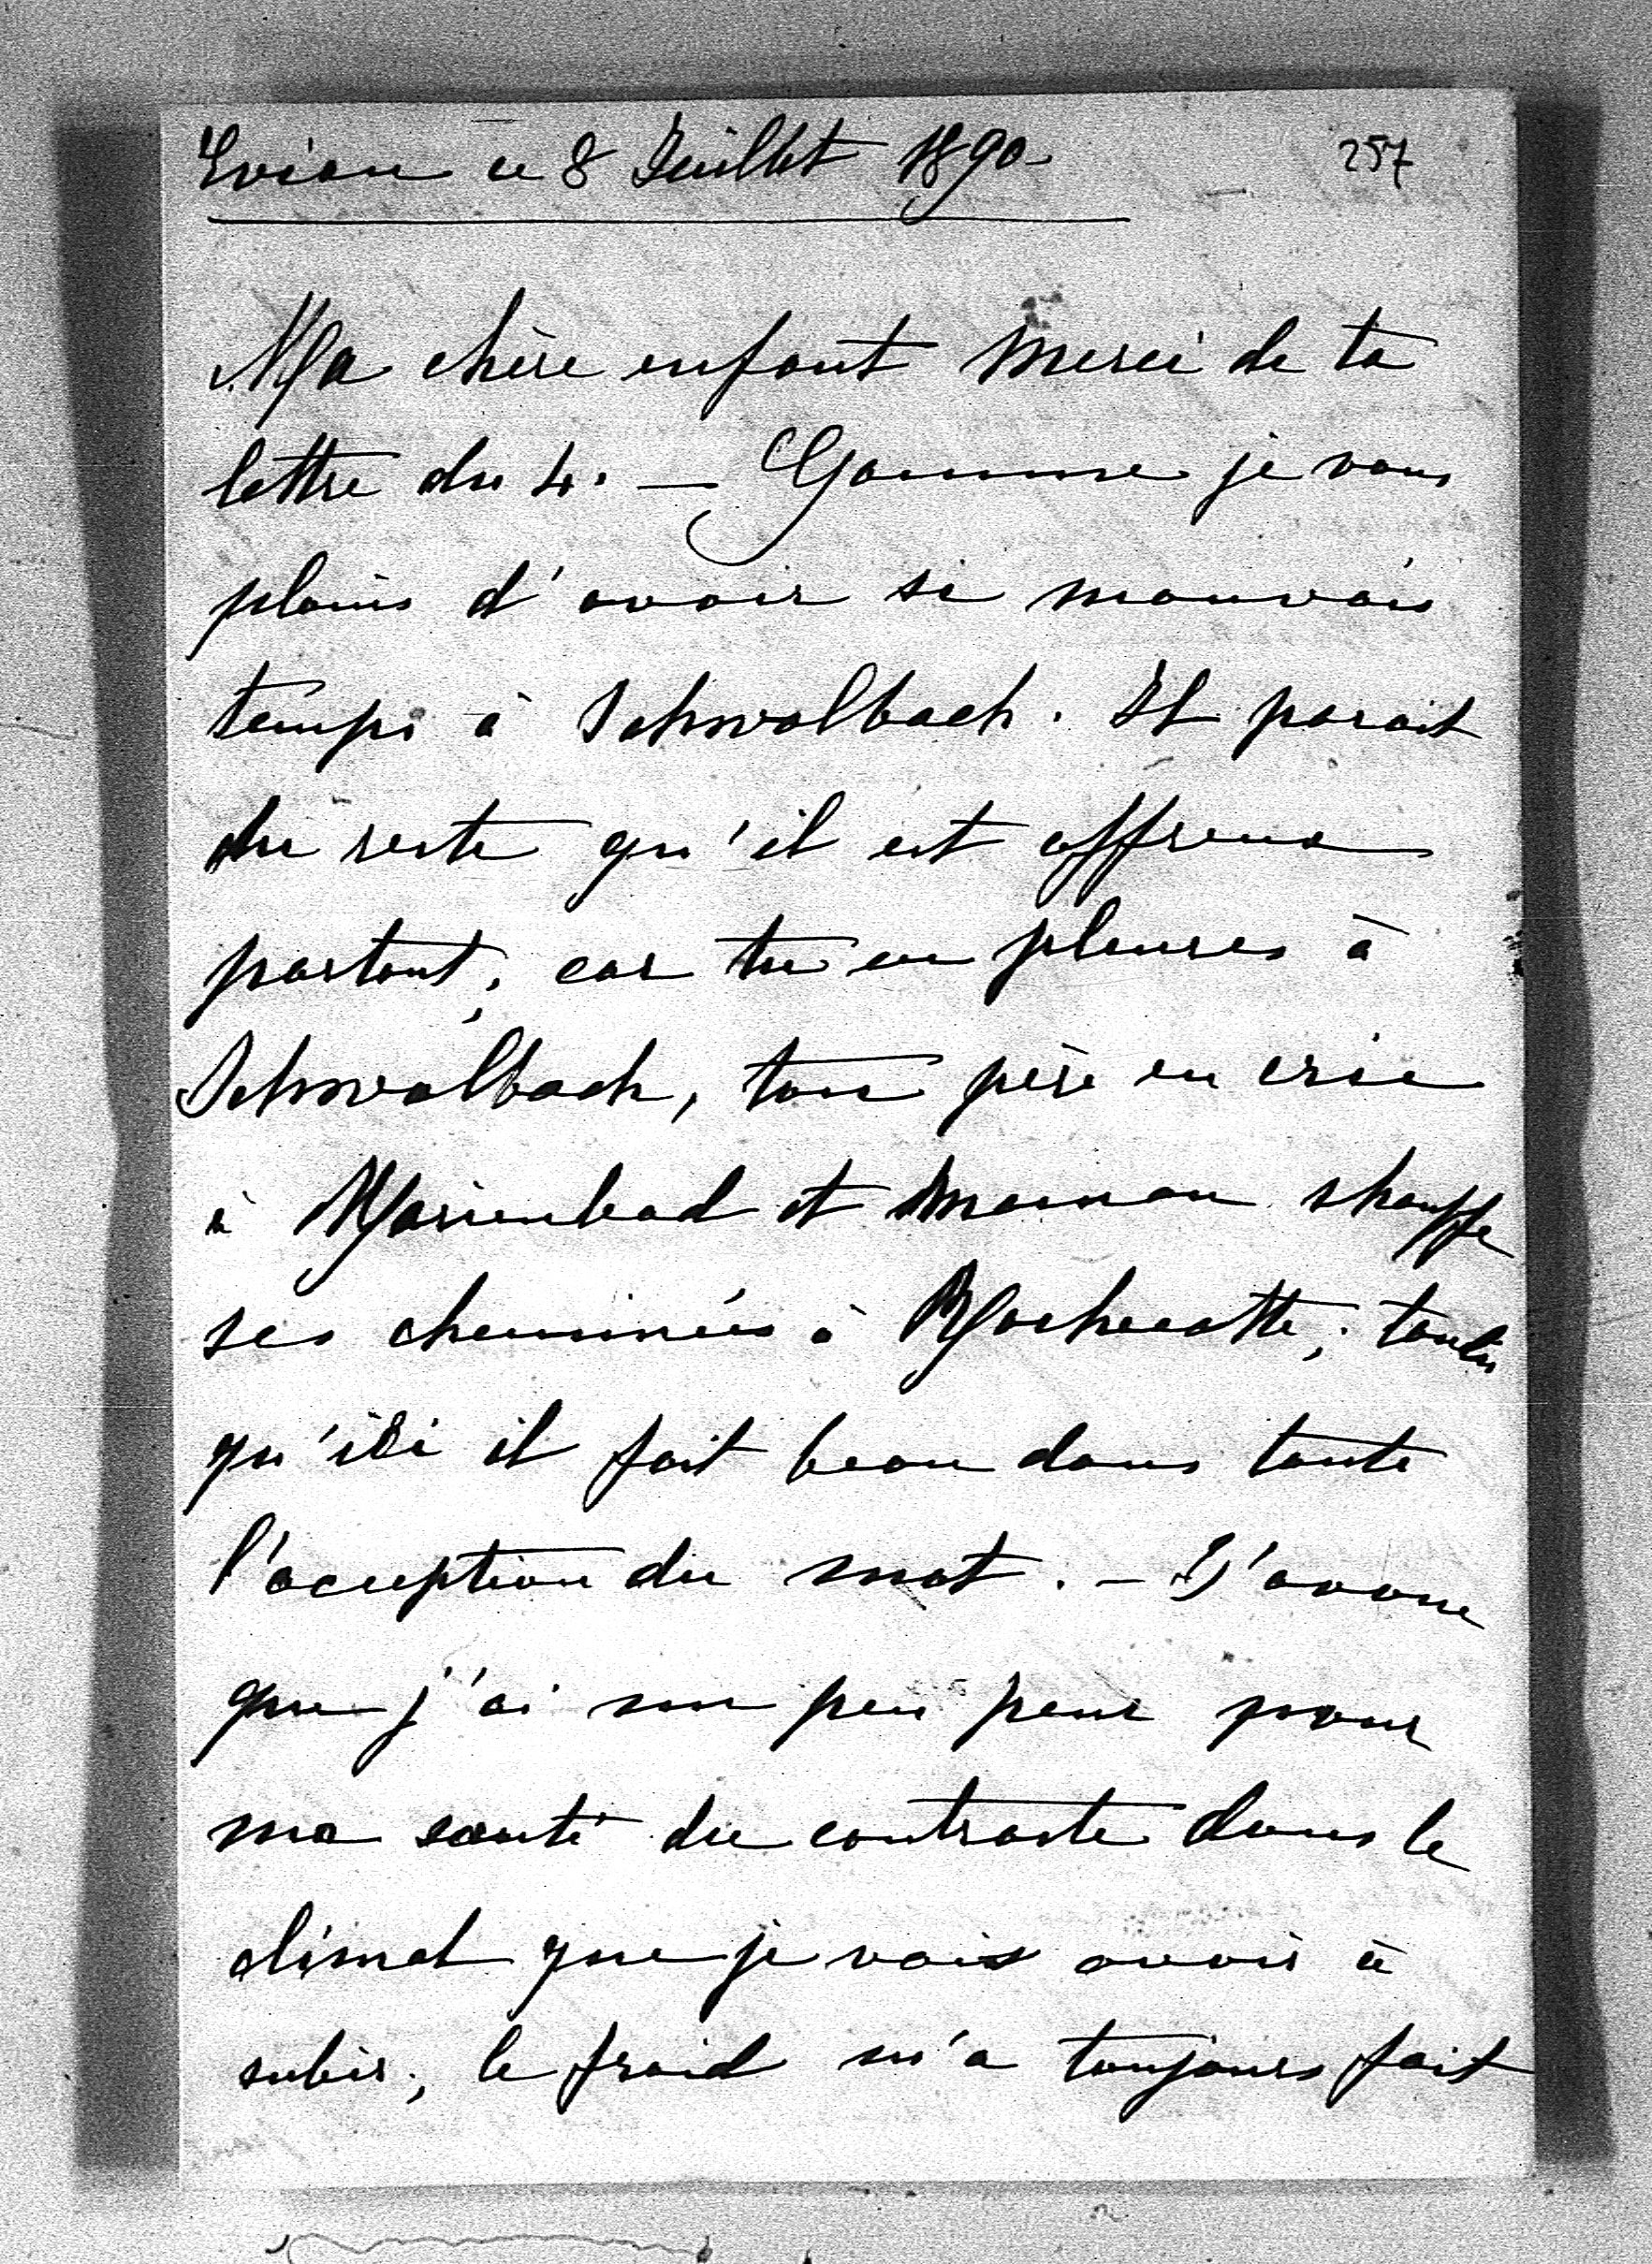 Evian ce 8 Juillet 1890
257
Ma chère enfant merci de ta
lettre du 4. — Comme je vous
plains d'avoir si mauvais
temps à Schwalbach. Il parait
du reste qu'il est affreux
partout; car tu en pleures à
Schwalbach, ton père en crie
à Marienbad et maman chauffe
ses cheminées à Rochecotte; tandis
qu'ici il fait beau dans toute
l'acception du mot. — J'avoue
que j'ai un peu peur pour
ma santé du contraste dans le
climat que je vais avoir à
subir; le froid m'a toujours fait